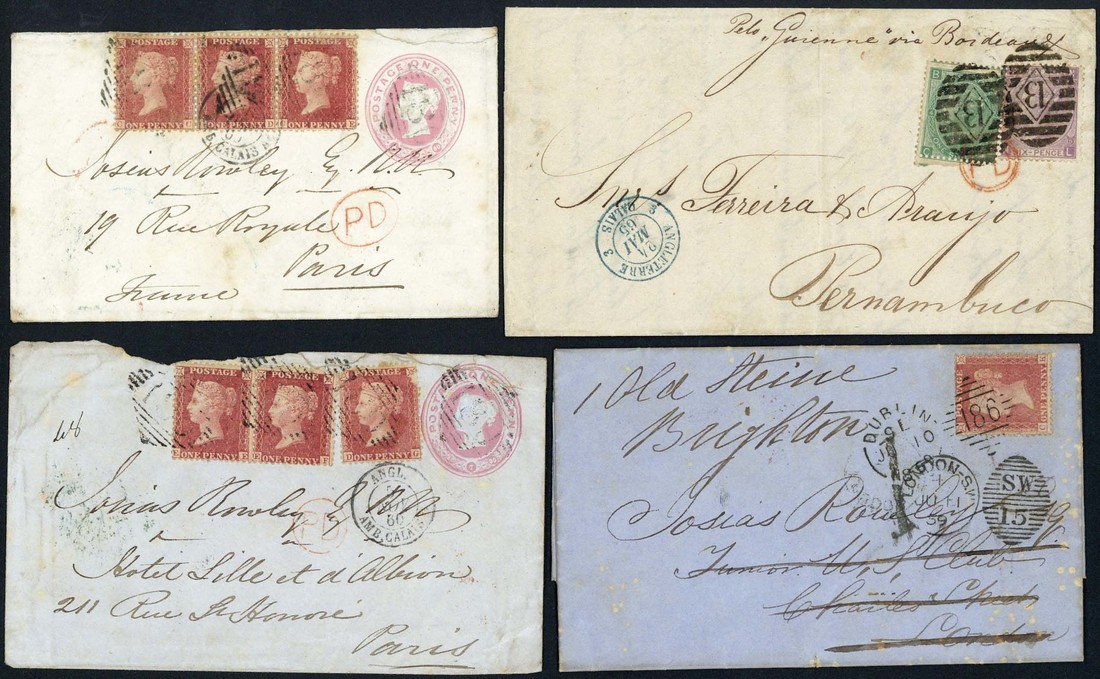 POSTAGE
POSTAGE
POSTAGE
ONE PENNY
ONE PENNY
ONE PENNY
POSTAGE ONE PENNY
CALAIS
Josias Rowley Esq R.N.
19 Rue Royale
PD
Paris
France
Pelo "Guienne" via Bordeaux
13
13
SIX-PENCE
PD
Snrs Ferreira & Araujo
Pernambuco
ANGLETERRE
24
MAI
65
3 CALAIS 3
POSTAGE
POSTAGE
POSTAGE
ONE PENNY
ONE PENNY
ONE PENNY
POSTAGE ONE PENNY
Josias Rowley Esq R.N.
ANGL.
60
AMB. CALAIS
PD
à
Hotel Lille et d'Albion
211 Rue St Honoré
Paris
1 Old Steine
Brighton
ONE PENNY
186
DUBLIN
JU 10
1
LONDON-SW
JU 11
59
SW
15
Josias Rowley
Junior U.S. Club
Charles
London